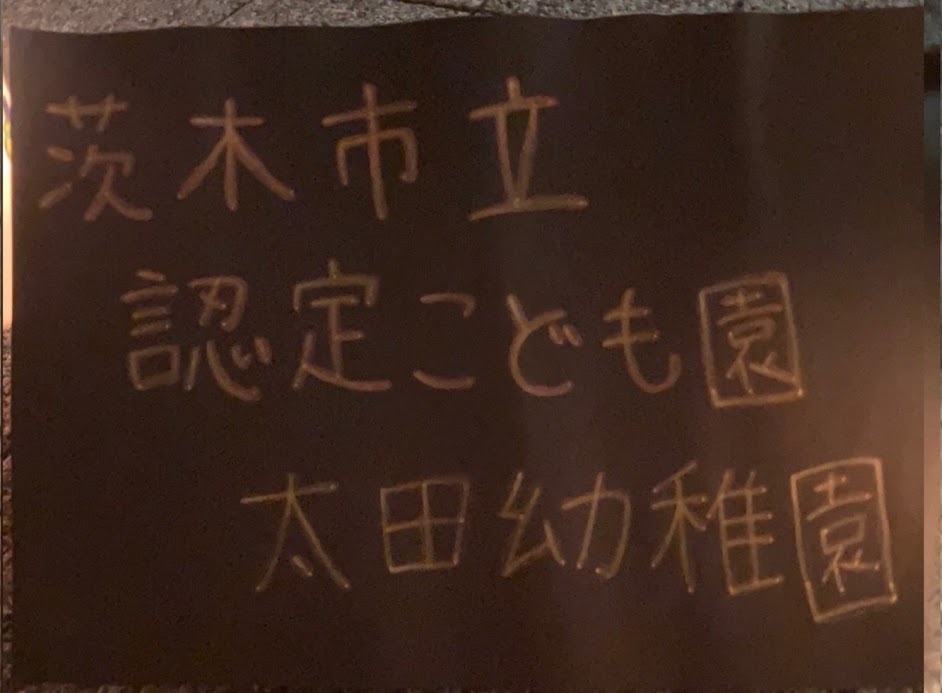 茨木市立
認定こども園
太田幼稚園